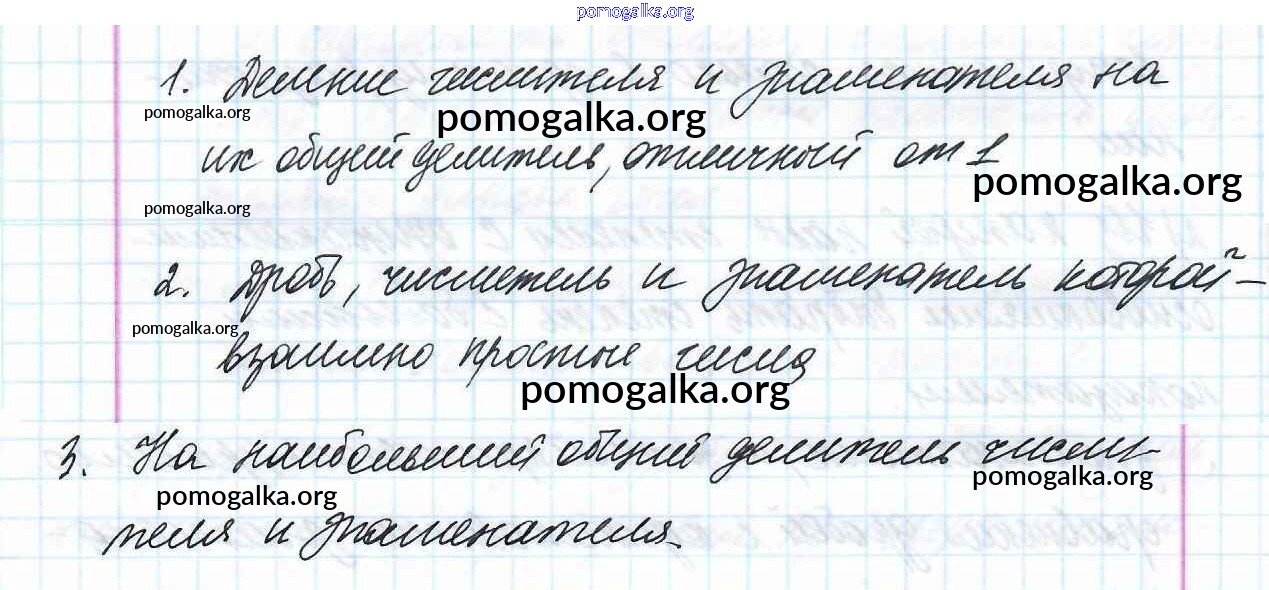 pomogalka.org
1. Деление числителя и знаменателя на
pomogalka.org pomogalka.org
их общий делитель, отличный от 1
pomogalka.org
pomogalka.org
2. Дробь, числитель и знаменатель которой –
pomogalka.org
взаимно простые числа
pomogalka.org
3. На наибольший общий делитель числи-
pomogalka.org pomogalka.org
теля и знаменателя.